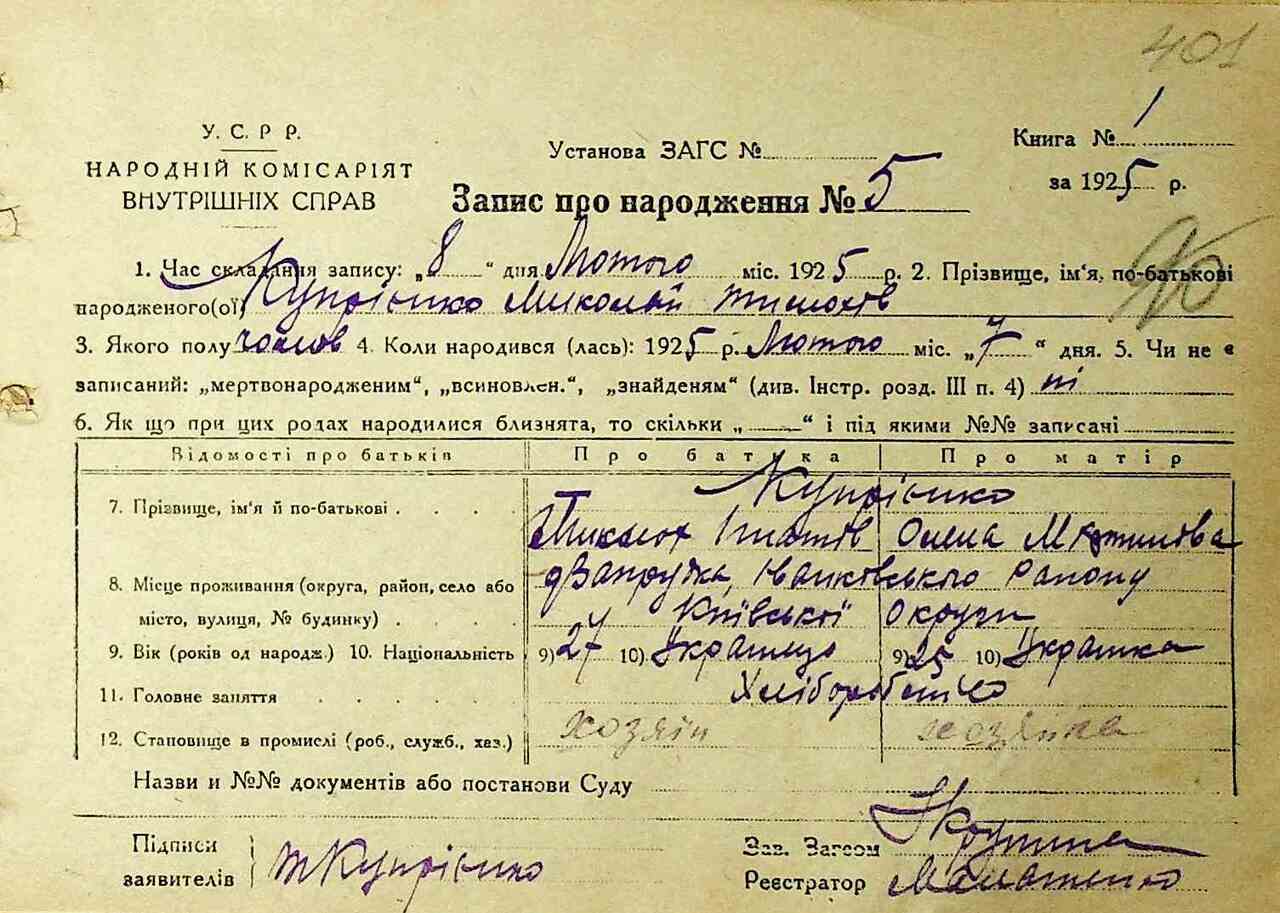 401
У. С. Р Р.
НАРОДНІЙ КОМІСАРІЯТ
ВНУТРІШНІХ СПРАВ
Установа ЗАГС №
Книга № 1
за 1925 р.
Запис про народження № 5
1. Час складання запису: „8“ дня Лютого міс. 1925 р. 2. Прізвище, ім'я, по-батькові
народженого(ої) Купрієнко Миколай
3. Якого полу 4. Коли народився (лась): 1925 р. Лютого міс. „7“ дня. 5. Чи не є
записаний: „мертвонародженим“, „всиновлен.“, „знайденям“ (див. Інстр. розд. III п. 4) ні
6. Як що при цих родах народилися близнята, то скільки „ “ і під якими №№ записані
Відомості про батьків Про батька Про матір
Купрієнко
7. Прізвище, ім'я й по-батькові . . . . Олена
8. Місце проживання (округа, район, село або району
місто, вулиця, № будинку) . . . . Київської округи
9. Вік (років од народж.) 10. Національність 9) 27 10) Українець 9) 25 10) Українка
11. Головне заняття . . . . . Хліборобство
12. Становище в промислі (роб., служб., хаз.) хозяїн хозяйка
Назви и №№ документів або постанови Суду
Підписи
заявителів Т Купрієнко
Зав. Загсом
Реєстратор